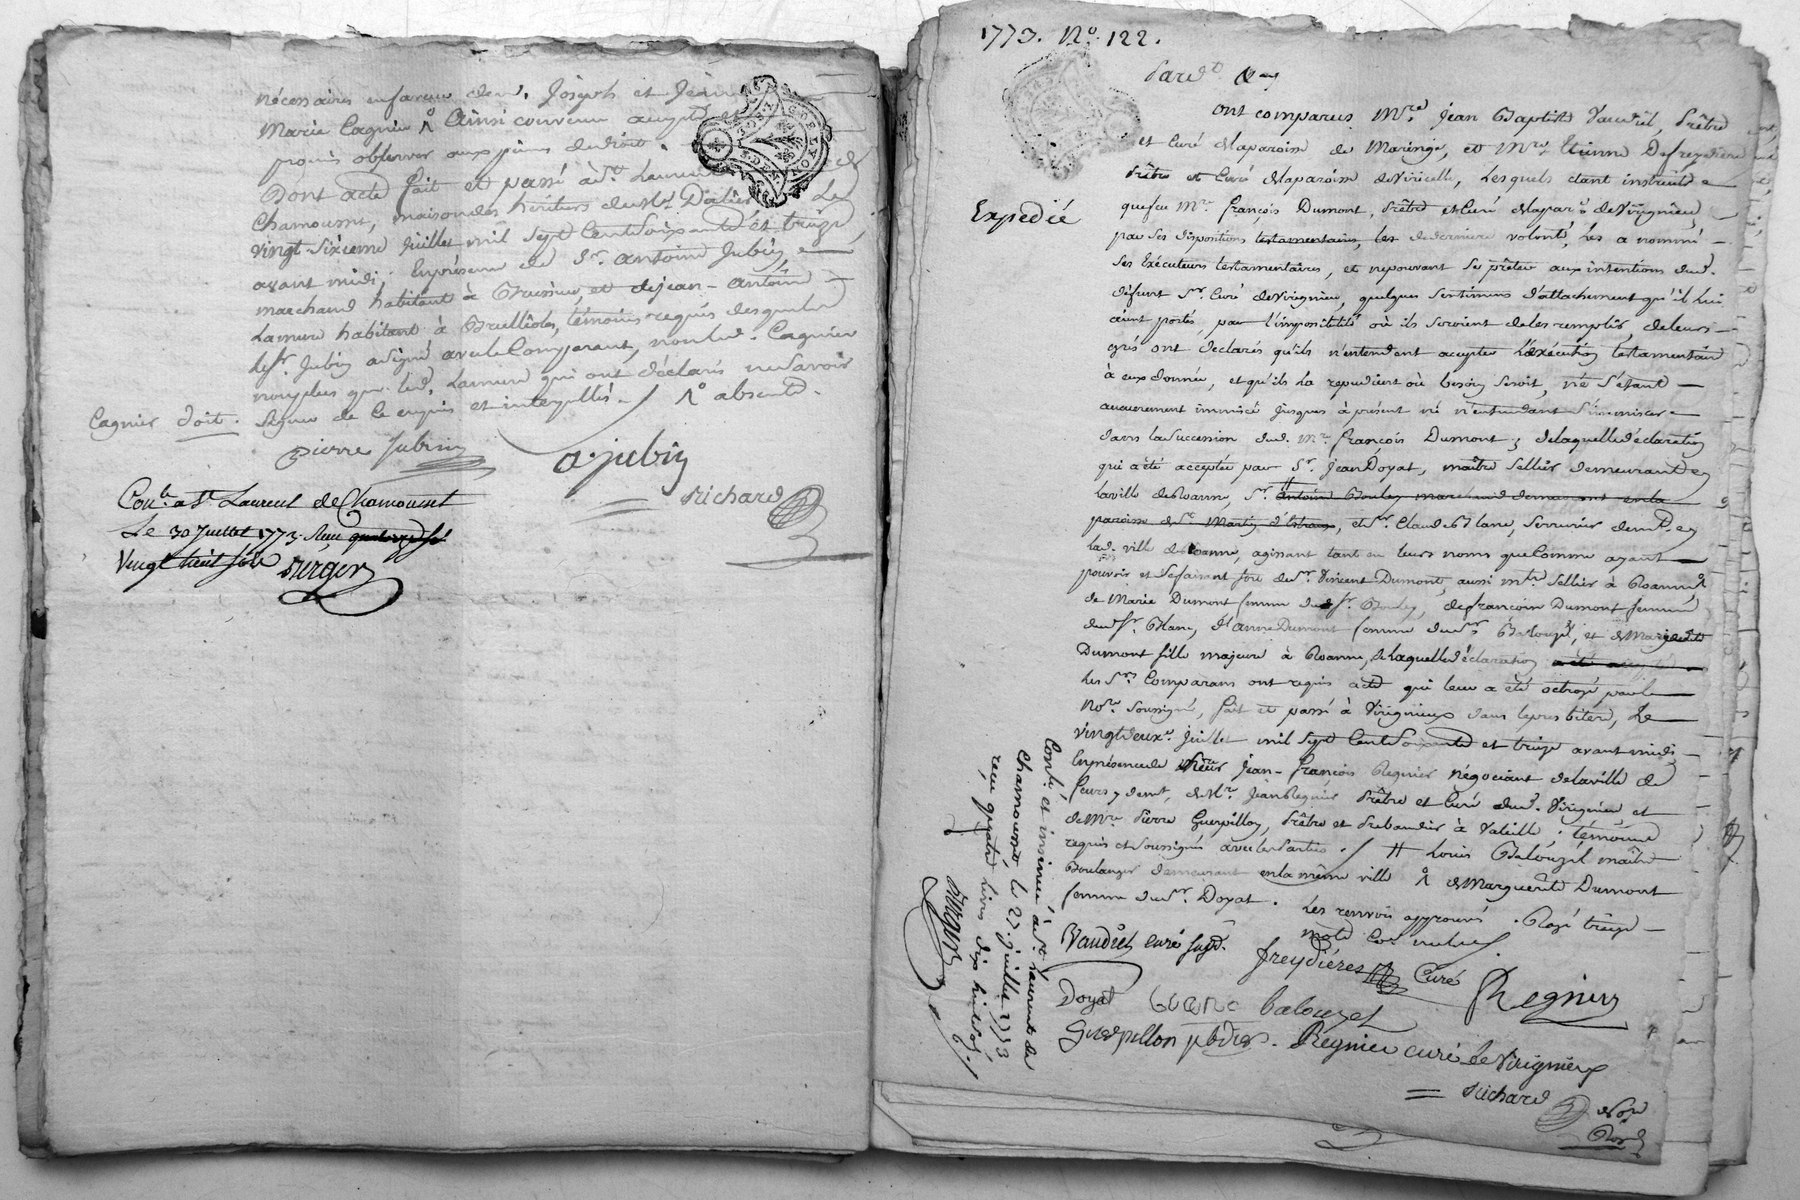 nécessaires en faveur desd. Joseph et Jeanne
Marie Cagnier Ainsi convenu accepté et
promis observer aux peines de droit.
Dont acte fait et passé à St. Laurent de
Chamousset, maison des héritiers de Mr. Dalier Le
vingt Sixieme Juillet mil Sept Cent Soixante et treize
avant midi, En présence de Sr. Antoine Jubin,
marchand habitant à Brussieu, et de jean-Antoine
Lamure habitant à Brulliole, témoins requis desquels
led. Sr. Jubin a signé avec le Comparant, non led. Cagnier
non plus que led. Lamure qui ont déclaré ne savoir
Cagnier doit. Signer de ce enquis et interpellés. / absente.
Pierre Jubin
a. jubin
Richard
Conlé a St Laurent de Chamousset
Le 30 Juillet 1773. Reçu
Vingt huit sols Burger
1773. No. 122.
Pardt
Ont comparus Mre. Jean Baptiste Vaudil, Prêtre
et Curé de la paroisse de Maringe, et Mre. Etienne Defreydiere
Prêtre et Curé de la paroisse de Viricelle, Lesquels étant instruits
Expedié
que feu Mre. françois Dumont, Prêtre et Curé de la parsse de Virignieu,
par Ses dispositions testamentaires, de derniere volonté, Les a nommé
Ses Exécuteurs testamentaires, et ne pouvant Se prêter aux intentions dud.
défunt Sr. Curé de Virignieu, quelques Sentimens d'attachement qu'il lui
aient portés, par l'impossibilité où ils Seroient de les remplir, de leurs
grés ont déclarés qu'ils n'entendent accepter L'exécution testamentaire
à eux donnée, et qu'ils La repudient où besoin Seroit, ne S'étant
aucunement immiscé jusques à présent ne n'entendant S'immiscer
dans la Succession dud. Mre. françois Dumont, de laquelle déclaration
qui a été acceptée par Sr. Jean Doyat, maître Sellier demeurant en
la ville de Roanne, Sr. Antoine Boulay marchand demeurant en la
paroisse de St. Martin d'Estreaux, et Sr. Claude Blanc, Serrurier demt. en
lad. ville de Roanne, agissant tant en leurs noms que Comme ayant
pouvoir et Se faisant fort de Sr. Vincent Dumont, aussi mtre Sellier à Roanne,
de Marie Dumont femme dud. Sr. Boulay, de françoise Dumont femme
dud. Sr. Blanc, d'anne Dumont femme dud. Sr. Balouzet, et de Marguerite
Dumont fille majeure à Roanne, de laquelle déclaration
Les Srs Comparans ont requis acte qui leur a été octroyé par le
Nore. Soussigné, fait et passé à Virignieux dans le presbitere, Le
vingt deuxe. Juillet mil Sept Cent Soixante et treize avant midi
En présence de Sieur Jean-françois Regnier négociant de la ville de
feurs y demt, de Mre. Jean Regnier Prêtre et Curé dud. Virignieu, et
de Mre Pierre Guerpillon, Prêtre et Prebandier à Valeille, témoins
requis et Soussignés avec les Parties. / # Louis Balouzet maître
Boulanger demeurant en la même ville de Marguerite Dumont
femme dud. Sr. Doyat. Les renvois approuvés. Rayé treize
mots Comme nuls.
Conlé. et insinué, à St. Laurent de
Chamousset le 27. juillet 1773
reçu quatre livres dix huit sols.
Burger
Vaudiel curé susd.
freydiéres Curé
Regnier
Doyat
BLANC
balouzet
Guerpillon pbdier.
Regnier curé de Virignieux
Richard